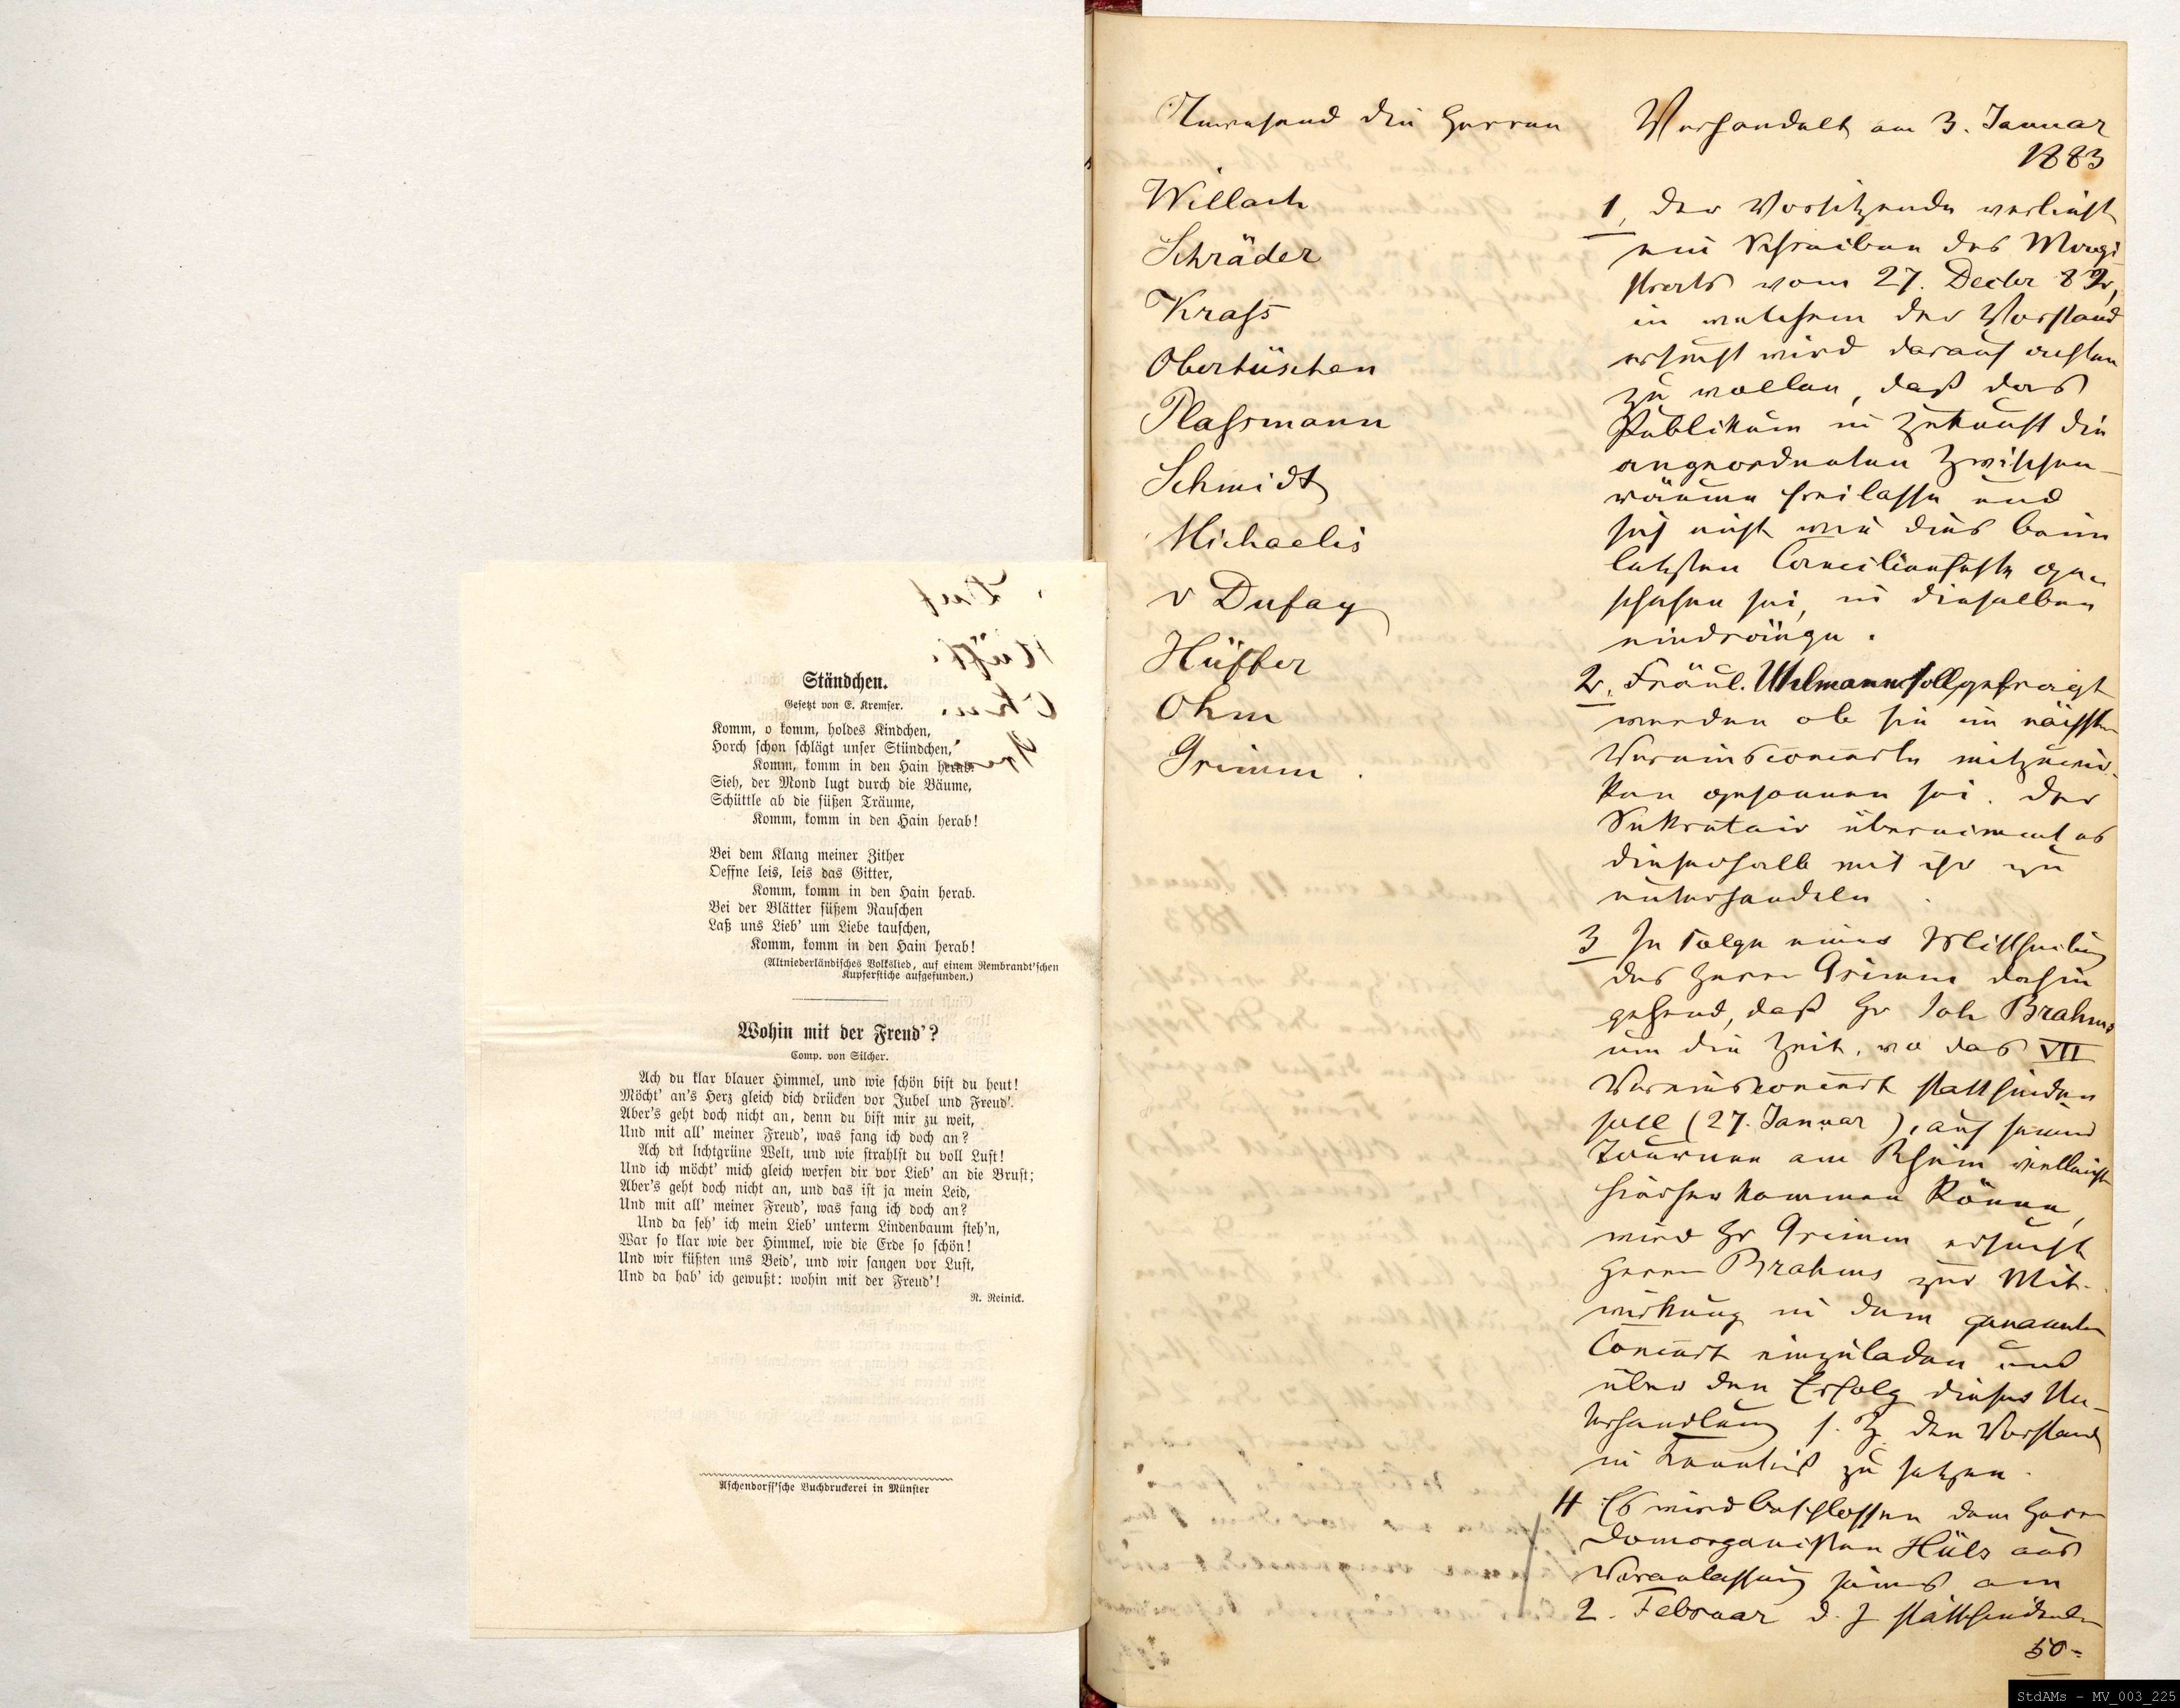 Ständchen.
Gesetzt von E. Kremser.
Komm, o komm, holdes Kindchen,
Horch schon schlägt unser Stündchen,
Komm, komm in den Hain herab.
Sieh, der Mond lugt durch die Bäume,
Schüttle ab die süßen Träume,
Komm, komm in den Hain herab!
Bei dem Klang meiner Zither
Oeffne leis, leis das Gitter,
Komm, komm in den Hain herab.
Bei der Blätter süßem Rauschen
Laß uns Lieb' um Liebe tauschen,
Komm, komm in den Hain herab!
(Altniederländisches Volkslied, auf einem Rembrandt'schen
Kupferstiche aufgefunden.)
Wohin mit der Freud'?
Comp. von Silcher.
Ach du klar blauer Himmel, und wie schön bist du heut!
Möcht' an's Herz gleich dich drücken vor Jubel und Freud'.
Aber's geht doch nicht an, denn du bist mir zu weit,
Und mit all' meiner Freud', was fang ich doch an?
Ach du lichtgrüne Welt, und wie strahlst du voll Lust!
Und ich möcht' mich gleich werfen dir vor Lieb' an die Brust;
Aber's geht doch nicht an, und das ist ja mein Leid,
Und mit all' meiner Freud', was fang ich doch an?
Und da seh' ich mein Lieb' unterm Lindenbaum steh'n,
War so klar wie der Himmel, wie die Erde so schön!
Und wir küßten uns Beid', und wir sangen vor Lust,
Und da hab' ich gewußt: wohin mit der Freud'!
R. Reinick.
Aschendorff'sche Buchdruckerei in Münster
Anwesend die Herren
Willach
Schräder
Krass
Obertüschen
Plassmann
Schmidt
Michaelis
v Dufay
Hüffer
Ohm
Grimm.
Verhandelt am 3. Januar
1883
1, Der Vorsitzende verliest
ein Schreiben des Magi
strats vom 27. Decbr 82,
in welchem der Vorstand
ersucht wird darauf achten
zu wollen, daß das
Publikum in Zukunft die
angeordneten Zwischen-
räume freilasse und
sich nicht wie dies beim
letzten Caecilienfeste ge-
schehen sei, in dieselben
eindränge.
2. Fräul. Uhlmann soll gefragt
werden ob sie im nächsten
Vereinsconcerte mitzuwir-
ken gesonnen sei. Der
Sekretair übernimmt es
dieserhalb mit ihr zu
unterhandeln
3 In Folge einer Mittheilung
des Herrn Grimm dahin
gehend, daß Hr Joh Brahms
um die Zeit, wo das VII
Vereinsconcert stattfinden
soll (27. Januar), auf seiner
Tournee am Rhein vielleicht
hierher kommen könne,
wird Hr Grimm ersucht
Herrn Brahms zur Mit-
wirkung in dem genannten
Concert einzuladen und
über den Erfolg dieser Un-
terhandlung s. Z. den Vorstand
in Kenntniß zu setzen.
4 Es wird beschlossen dem Herrn
Domorganisten Hüls aus
Veranlassung seines am
2. Februar d. J stattfindenden
50-
StdAMs - MV_003_225